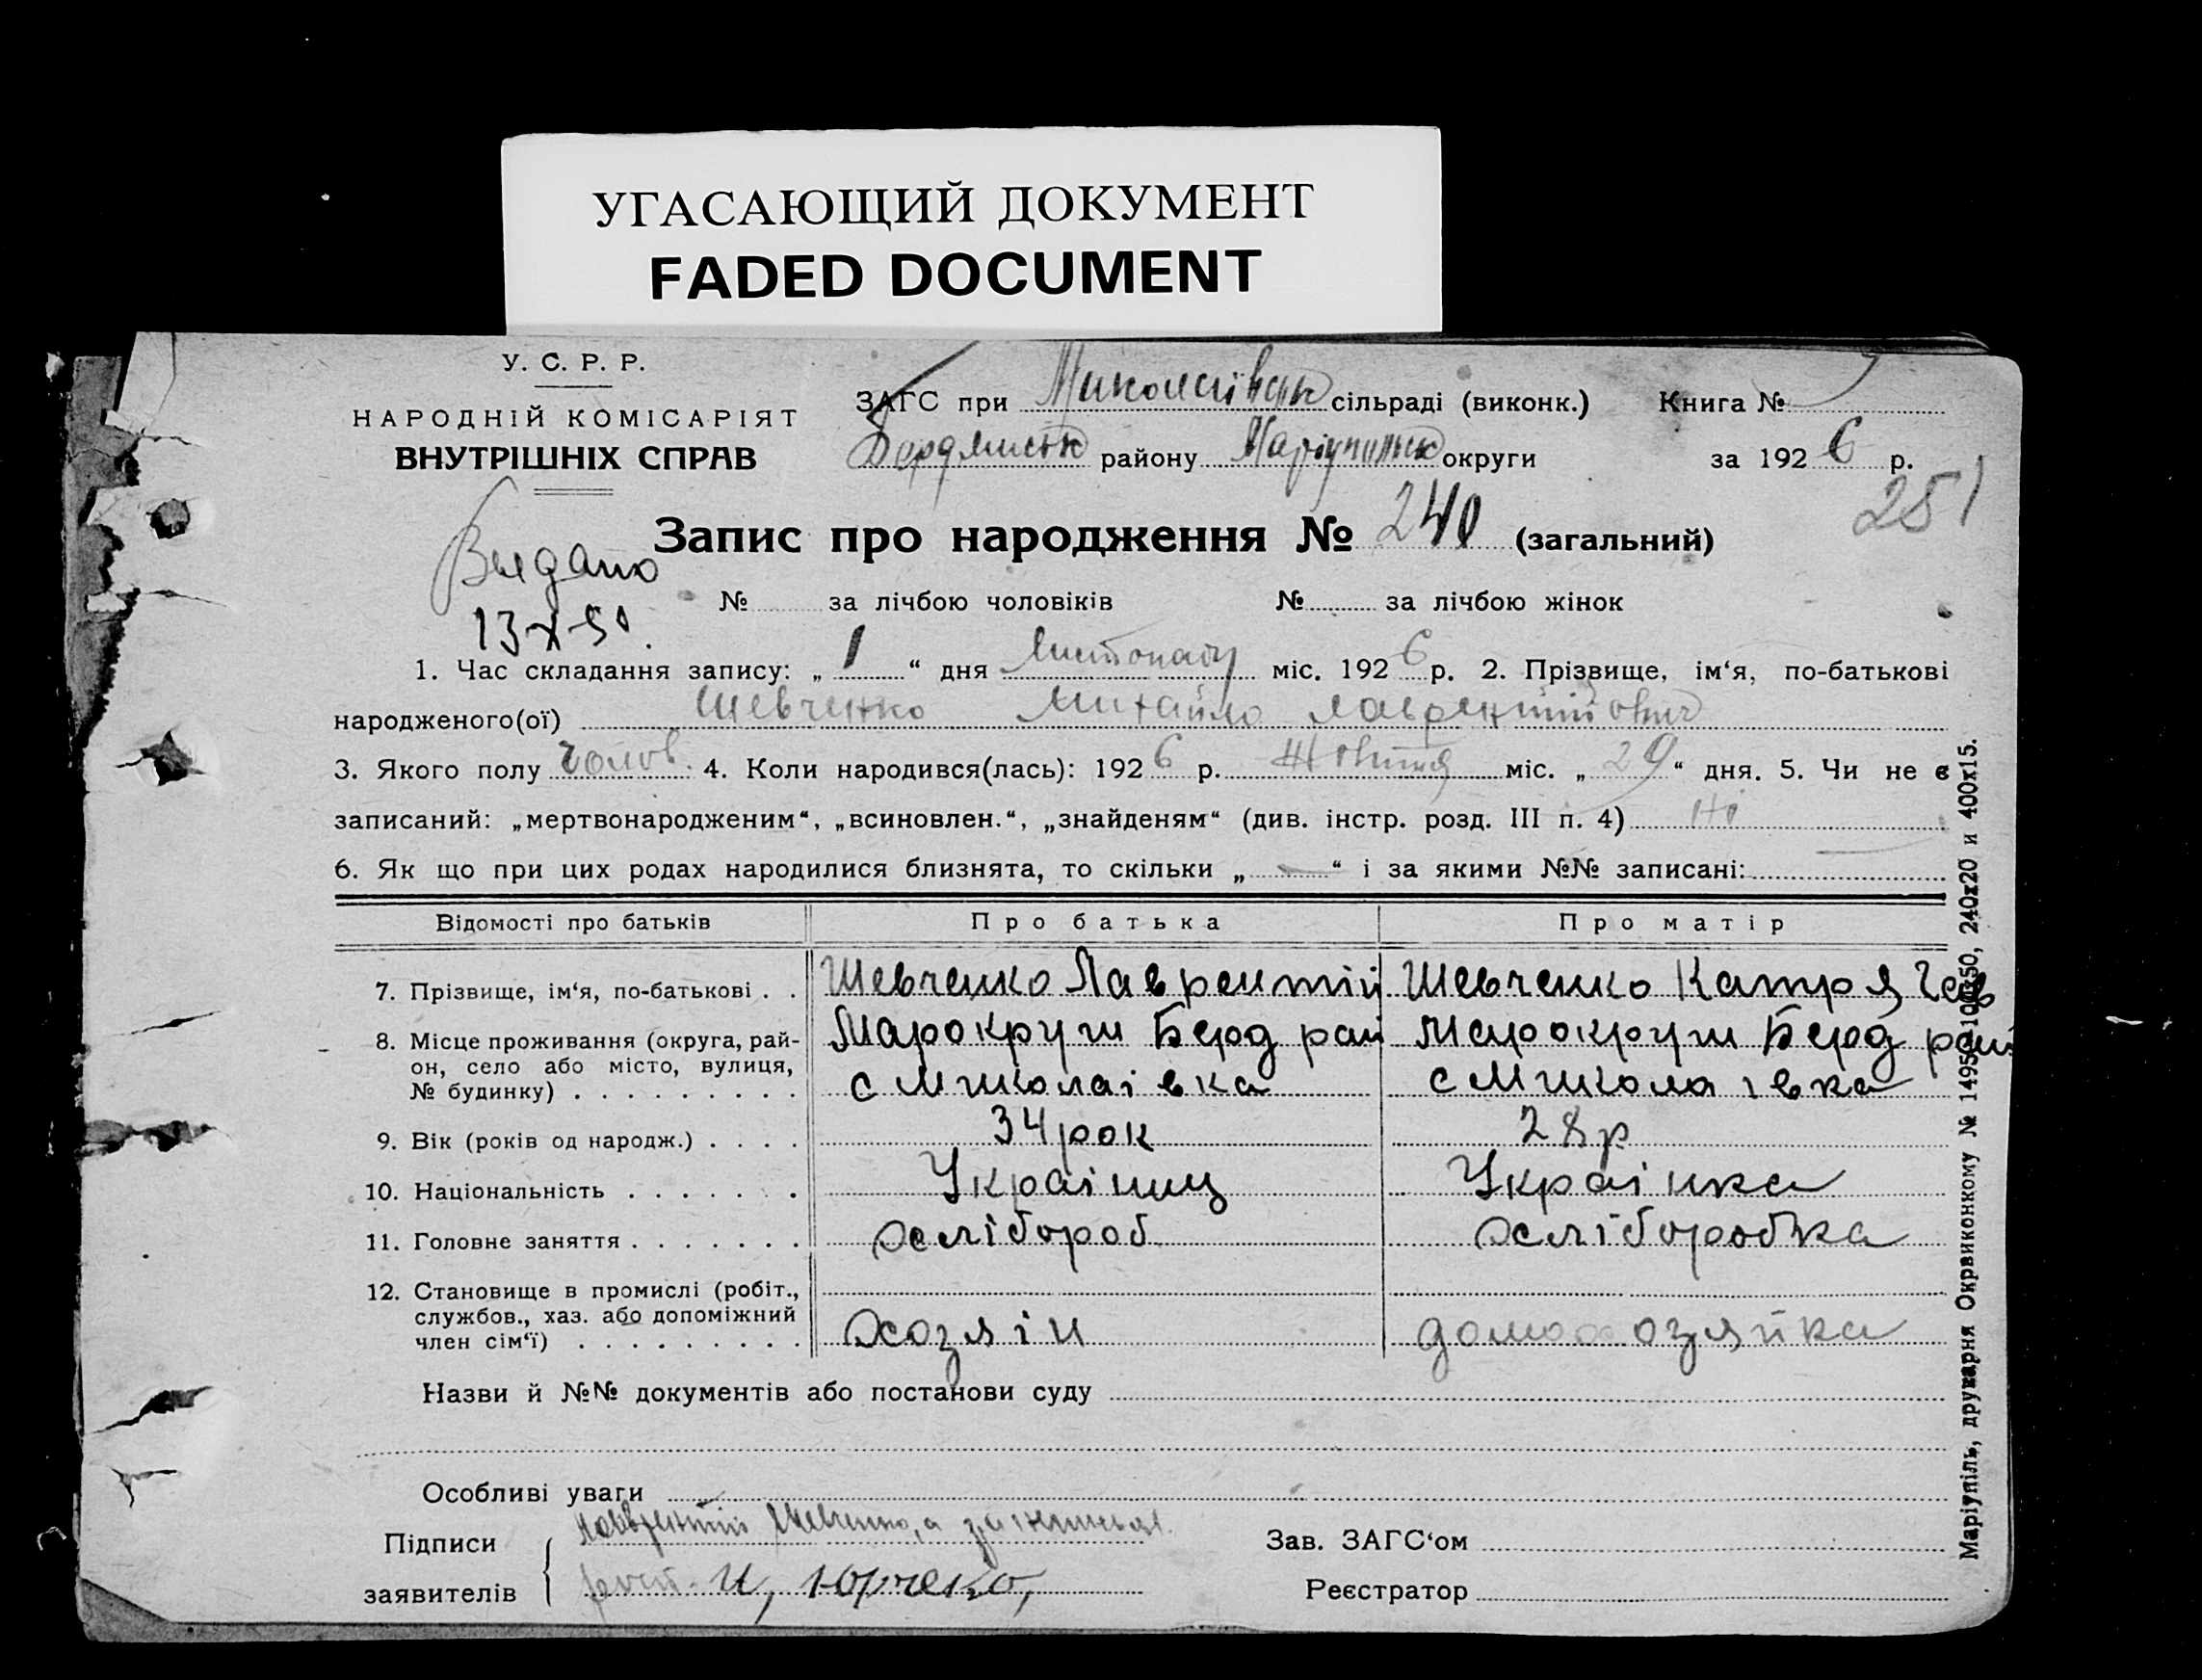 УГАСАЮЩИЙ ДОКУМЕНТ
FADED DOCUMENT
У. С. Р. Р.
НАРОДНІЙ КОМІСАРІЯТ
ВНУТРІШНІХ СПРАВ
ЗАГС при Миколаївськ сільраді (виконк.) Книга №
Бердянськ району Маріупольськ округи за 1926 р.
251
Запис про народження № 240 (загальний)
Выдано
13 X 50.
№ за лічбою чоловіків № за лічбою жінок
1. Час складання запису: „1“ дня Листопаду міс. 1926 р. 2. Прізвище, ім‘я, по-батькові
народженого(ої) Шевченко Михайло Лаврентійович
3. Якого полу чолов. 4. Коли народився(лась): 1926 р. Жовтня міс. „29“ дня. 5. Чи не є
записаний: „мертвонародженим“, „всиновлен.“, „знайденям“ (див. інстр. розд. III п. 4) Ні
6. Як що при цих родах народилися близнята, то скільки „—“ і за якими №№ записані:
Відомості про батьків Про батька Про матір
7. Прізвище, ім‘я, по-батькові . . Шевченко Лаврентій Шевченко Катря
8. Місце проживання (округа, рай- Марокруги Берд рай Марокруги Берд рай
он, село або місто, вулиця, с Миколаівка с Миколаівка
№ будинку) . . . . . . . . .
9. Вік (років од народж.) . . . . 34 рок 28 р
10. Національність . . . . . . . Украіниц Украінка
11. Головне заняття . . . . . . . хлібороб хлібороб­ка
12. Становище в промислі (робіт.,
службов., хаз. або допоміжний
член сім‘ї) . . . . . . . . . хозяін домохозяйка
Назви й №№ документів або постанови суду
Особливі уваги
Підписи Лаврентій Шевченко, а
заявителів И, Юрченко,
Зав. ЗАГС‘ом
Реєстратор
Маріупіль, друкарня Окрвиконкому № 1495 100х50, 240х20 и 400х15.